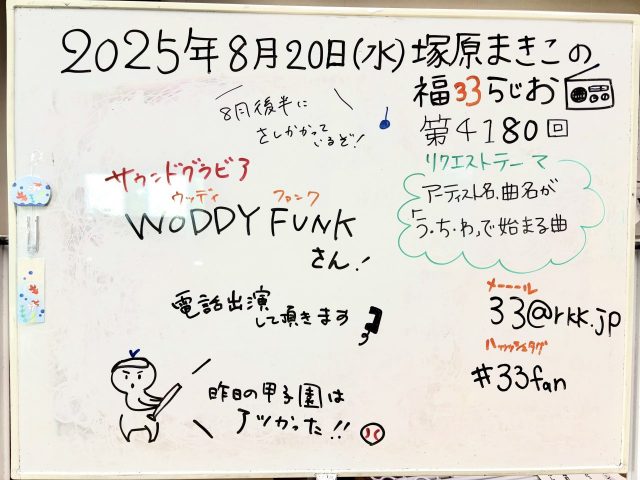 2025年8月20日(水)塚原まきこの
福33らじお
第4180回
8月後半に
さしかかって
いるぞ!
サウンドグラビア
ウッディ ファンク
WODDY FUNK
さん!
リクエストテーマ
アーティスト名、曲名が
「う・ち・わ」で始まる曲
電話出演
して頂きます
メーール
33@rkk.jp
ハッシュタグ
#33fan
昨日の甲子園は
アツかった!!